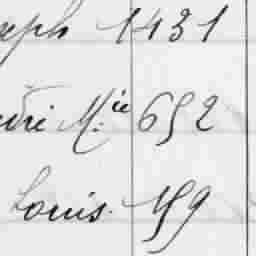 seph 1431
dré M.ie 652
Louis. 159